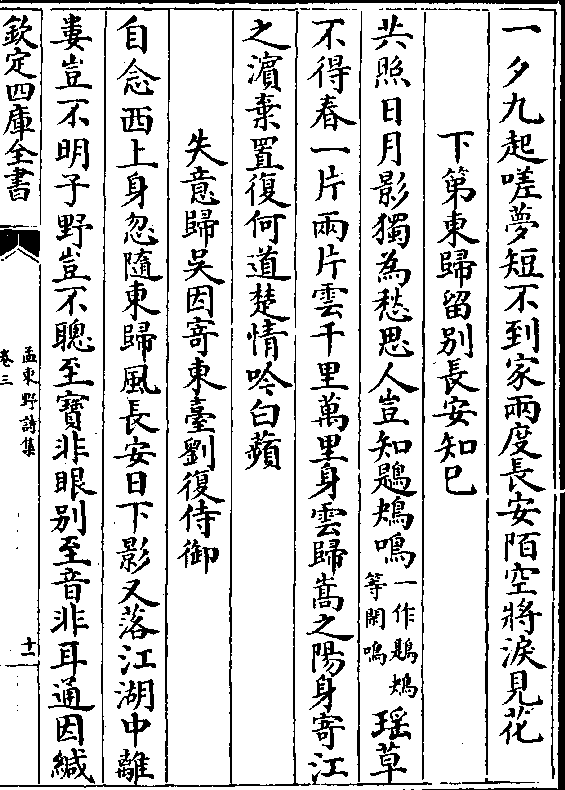 一夕九起嗟夢短不到家兩度長安陌空將淚見花
下第東歸留别長安知已
共照日月影獨為愁思人豈知鶗鴂鳴一作鶗鴂等閑鳴瑶草
不得春一片兩片雲千里萬里身雲歸嵩之陽身寄江
之濵棄置復何道楚情吟白蘋
失意歸吳因寄東臺劉復侍御
自念西上身忽隨東歸風長安日下影又落江湖中離
婁豈不明子野豈不聰至寶非眼别至音非耳通因緘
欽定四庫全書
孟東野詩集
卷三
十一